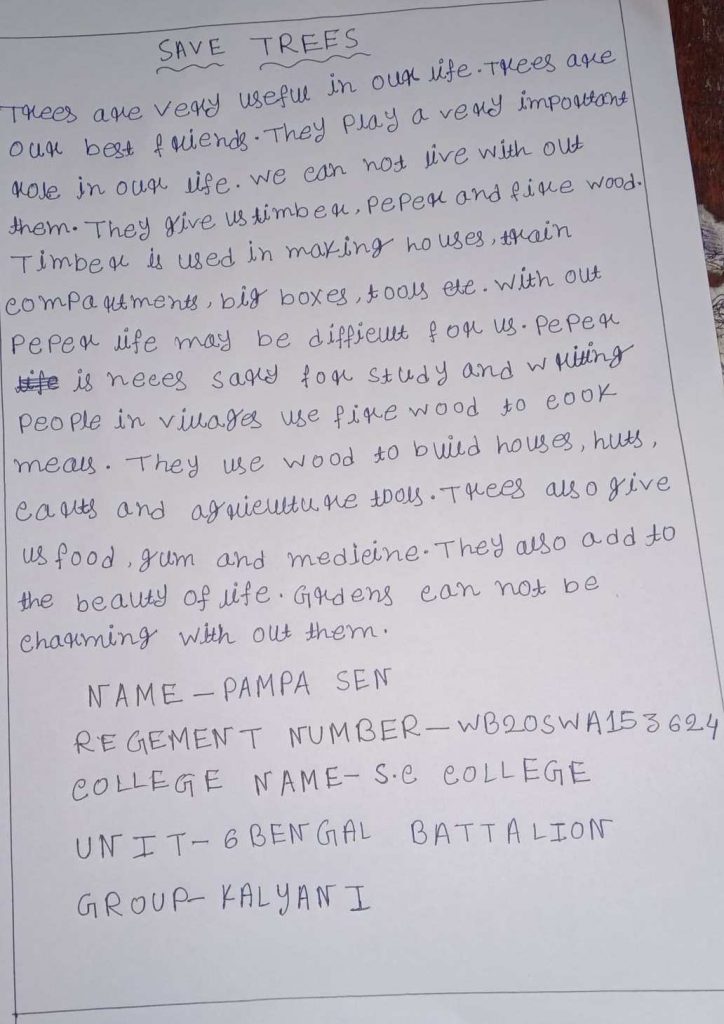 SAVE TREES
Trees are very useful in our life. Trees are
our best friends. They Play a very important
role in our life. we can not live with out
them. They give us timber, Peper and fire wood.
Timber is used in making houses, train
compartments, big boxes, tools etc. with out
Peper life may be difficult for us. Peper
life is neces sary for study and writing
People in villages use fire wood to cook
meals. They use wood to build houses, huts,
carts and agriculture tools. Trees also give
us food, gum and medicine. They also add to
the beauty of life. Grdens can not be
charming with out them.
NAME - PAMPA SEN
REGEMENT NUMBER - WB20SWA153624
COLLEGE NAME - S.C COLLEGE
UNIT - 6 BENGAL BATTALION
GROUP - KALYANI